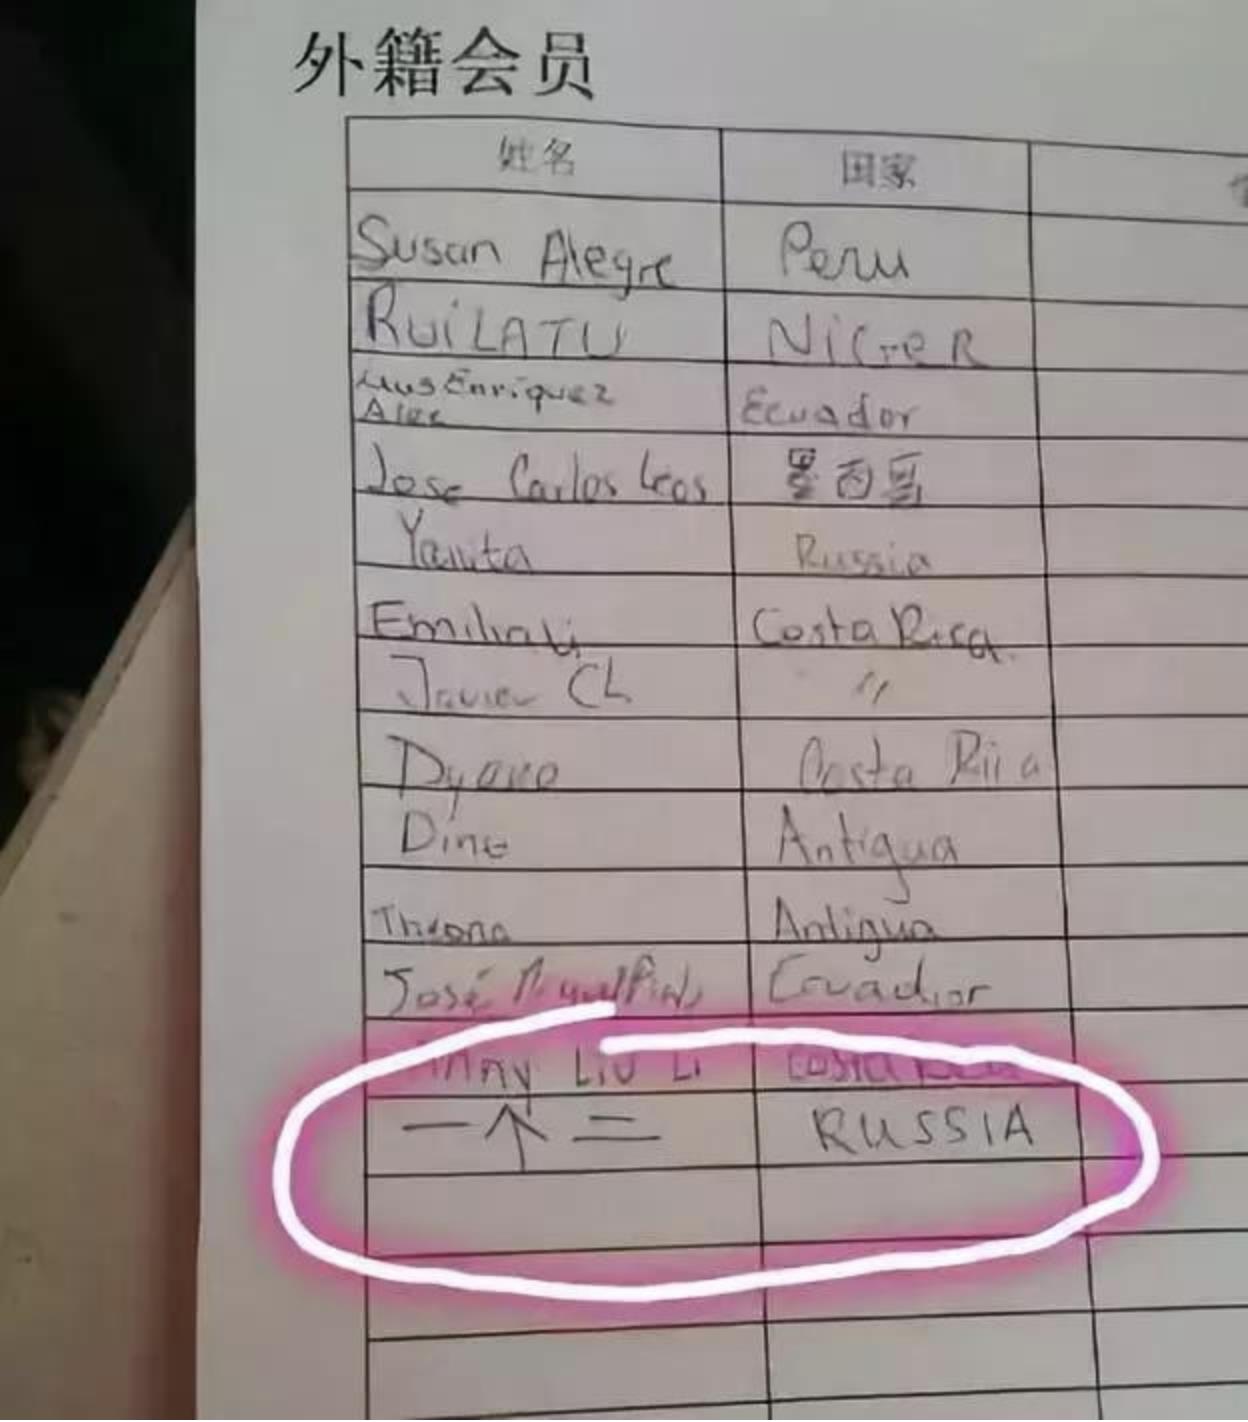 外籍会员
姓名 国家
Susan Alegre Peru
RUiLATU NiGeR
Enriquez Ecuador
Alex
Jose Carlos Leos 墨西哥
Russia
Costa Rica.
Javier CL 〃
Costa Rica
Dine Antigua
Antigua
José Ecuador
LiU Li Costa Rica
一个二 RUSSIA